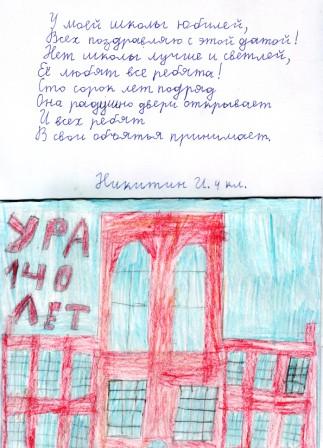 У моей школы юбилей,
Всех поздравляю с этой датой!
Нет школы лучше и светлей,
Её любят все ребята!
Сто сорок лет подряд
Она радушно двери открывает
И всех ребят
В свои объятья принимает.
Никитин И. 4 кл.
УРА
140
ЛЕТ